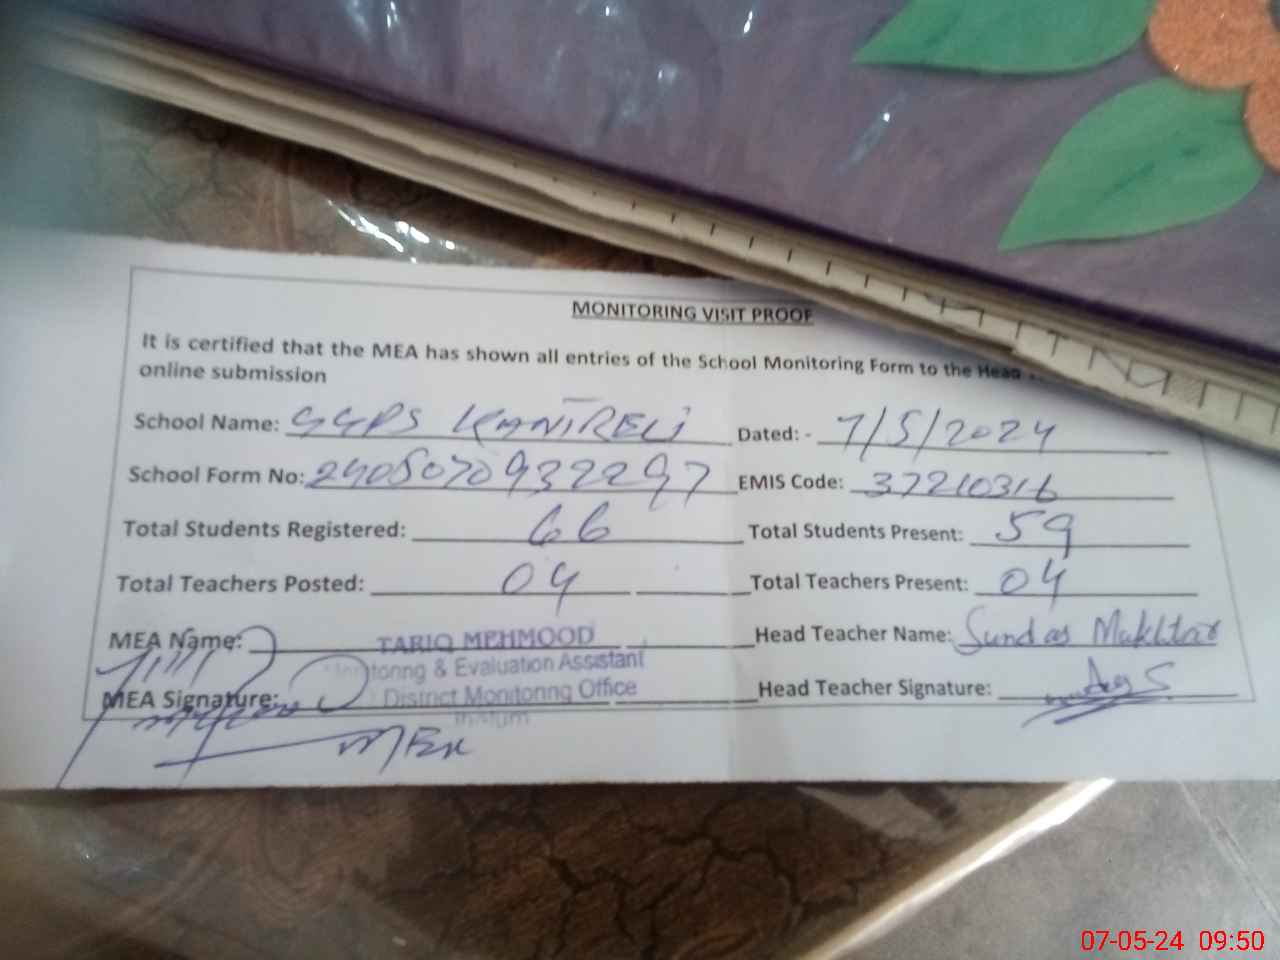 MONITORING VISIT PROOF
It is certified that the MEA has shown all entries of the School Monitoring Form to the Head
online submission
School Name: GGPS KANIRELI Dated: - 7/5/2024
School Form No: 24050709322297 EMIS Code: 37210316
Total Students Registered: 66 Total Students Present: 59
Total Teachers Posted: 04 Total Teachers Present: 04
MEA Name: TARIQ MEHMOOD Head Teacher Name: Sundas Mukhtar
Monitoring & Evaluation Assistant
MEA Signature: District Monitoring Office Head Teacher Signature:
MEA
07-05-24 09:50